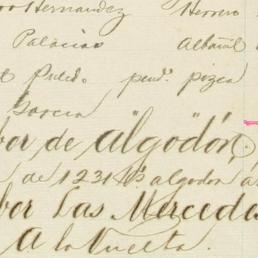 Hernandez Herrero
Palacios Albañil
Pulid. pend. pozca
Garcia
bor de "algodón,
de 1231 @s algodon á
bor Las Mercedes
A la Vuelta.